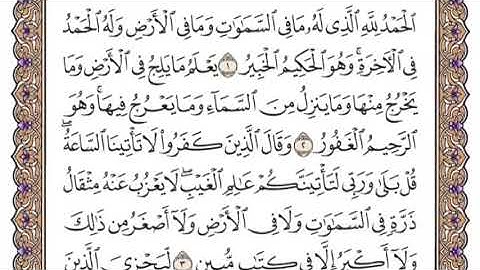 ٱلْحَمْدُ لِلَّهِ ٱلَّذِى لَهُۥ مَا فِى ٱلسَّمَٰوَٰتِ وَمَا فِى ٱلْأَرْضِ وَلَهُ ٱلْحَمْدُ
فِى ٱلْأَخِرَةِۚ وَهُوَ ٱلْحَكِيمُ ٱلْخَبِيرُ ١ يَعْلَمُ مَا يَلِجُ فِى ٱلْأَرْضِ وَمَا
يَخْرُجُ مِنْهَا وَمَا يَنزِلُ مِنَ ٱلسَّمَآءِ وَمَا يَعْرُجُ فِيهَاۚ وَهُوَ
ٱلرَّحِيمُ ٱلْغَفُورُ ٢ وَقَالَ ٱلَّذِينَ كَفَرُوا۟ لَا تَأْتِينَا ٱلسَّاعَةُۖ
قُلْ بَلَىٰ وَرَبِّى لَتَأْتِيَنَّكُمْ عَٰلِمِ ٱلْغَيْبِۖ لَا يَعْزُبُ عَنْهُ مِثْقَالُ
ذَرَّةٍ فِى ٱلسَّمَٰوَٰتِ وَلَا فِى ٱلْأَرْضِ وَلَآ أَصْغَرُ مِن ذَٰلِكَ
وَلَآ أَكْبَرُ إِلَّا فِى كِتَٰبٍ مُّبِينٍ ٣ لِّيَجْزِىَ ٱلَّذِينَ